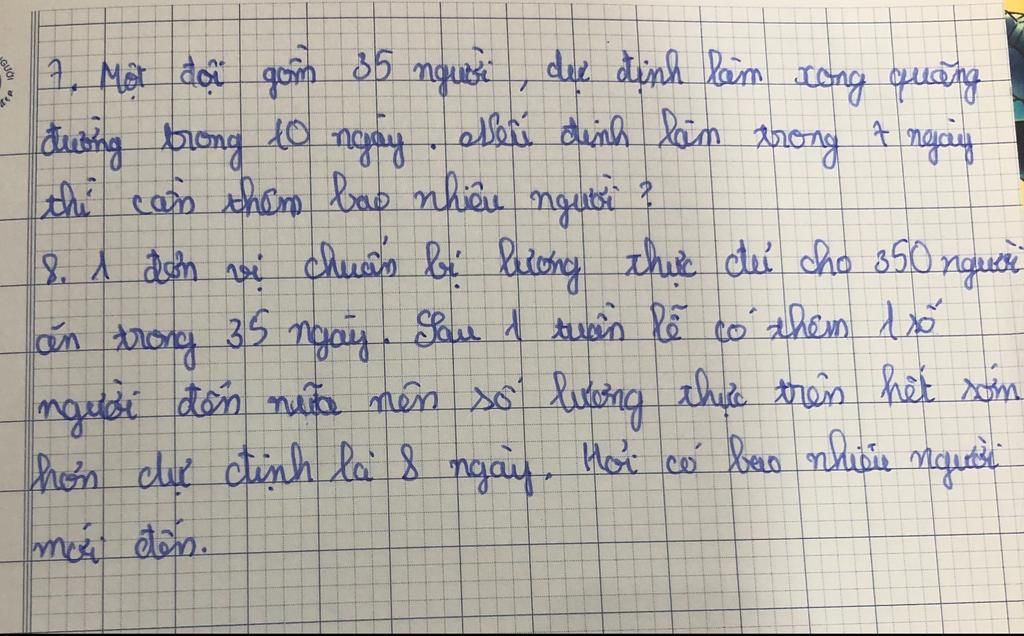 7. Một đội gồm 35 người, dự định làm xong quãng
đường trong 10 ngày. Nếu định làm trong 7 ngày
thì cần thêm bao nhiêu người?
8. 1 đơn vị chuẩn bị lương thực đủ cho 350 người
ăn trong 35 ngày. Sau 1 tuần lễ có thêm 1 số
người đến nữa nên số lương thực trên hết sớm
hơn dự định là 8 ngày. Hỏi có bao nhiêu người
mới đến.